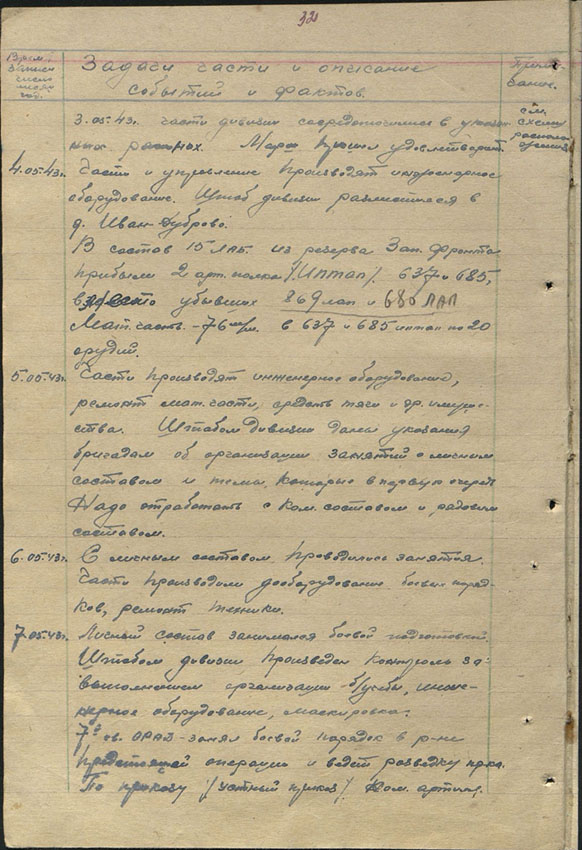 321
Время
записи
число
месяц
час.
Задачи части и описание
событий и фактов.
Приме-
чание.
3.05.43г. части дивизии сосредоточились в указан-
ных районах. Марш прошел удовлетворит.
см.
схему
располож.
4.05.43г. Части и управление производят инженерное
оборудование. Штаб дивизии разместился в
д. Иван-Дуброво.
В состав 15 ЛАБ. из резерва Зап. Фронта
прибыли 2 арт. полка /Иптап/ 637 и 685,
вместо убывших 869 лап и 680 ЛАП
Мат. часть - 76 м/м. в 637 и 685 иптап по 20
орудий.
5.05.43г. Части производят инженерное оборудование,
ремонт мат. части, средств тяги и др. имуще-
ства. Штабом дивизии даны указания
бригадам об организации занятий с личным
составом и темы, которые в первую очередь
надо отработать с ком. составом и рядовым
составом.
6.05.43г. С личным составом проводились занятия.
Части производили дооборудование боевых поряд-
ков, ремонт техники.
7.05.43г. Личный состав занимался боевой подготовкой
Штабом дивизии произведен контроль за
выполнением организации б/учебы, инже-
нерное оборудование, маскировка.
7й гв. ОРАД - занял боевой порядок в р-не
предстоящей операции и ведет разведку пр-ка.
По приказу /устный приказ/ Ком. артил.